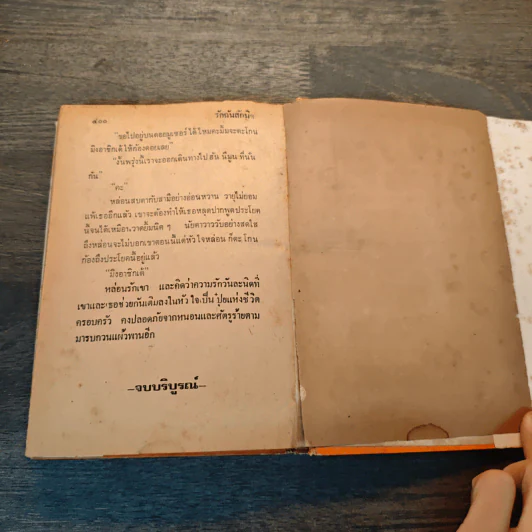 ๔๑๑ รักฉันสักนิด
"ขอไปอยู่บนดอยมูเซอร์ได้ไหมคะมิมจะตะโกน
มิงอาซิกเต้ ให้ก้องดอยเลย"
"งั้นพรุ่งนี้เราจะออกเดินทางไป ฮัน นีมูน ที่นั่น
กัน"
"คะ"
หล่อนสบตากับสามีอย่างอ่อนหวาน วายุไม่ยอม
แพ้เธออีกแล้ว เขาจะต้องทำให้เธอหลุดปากพูดประโยค
นี้จนได้เหมือน นัยตาวาววับอย่างสดใส
ถึงหล่อนจะไม่บอกเขาตอนนี้แต่หัวใจหล่อน ก็ตะโกน
ก้องถึงประโยคนี้อยู่แล้ว
"มิงอาซิกเต้"
หล่อนรักเขา และคิดว่าความรักวันละนิดที่
เขาและเธอช่วยกันเติมลงในหัวใจ เป็นปุ๋ยแห่งชีวิต
ครอบครัว คงปลอดภัยจากหนอนและศัตรูร้ายตาม
มารบกวนแผ้วพานอีก
—จบบริบูรณ์—